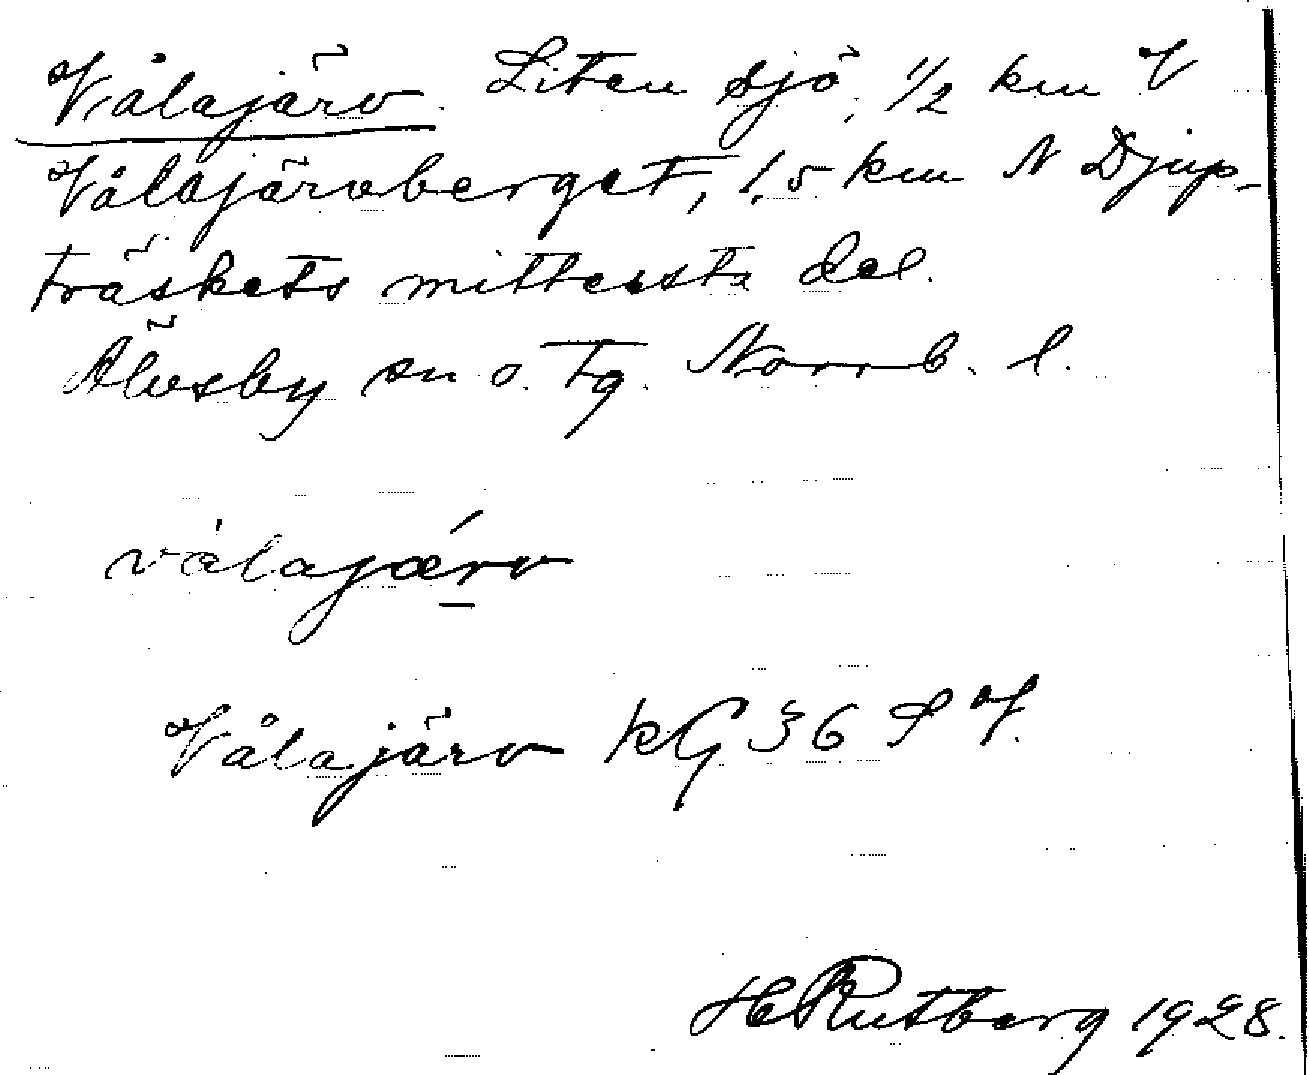 Vålajärv. Liten sjö, 1/2 km V
Vålajärvberget, 1,5 km N Djup-
träskets mittersta del.
Älvsby sn o. tg. Norrb. l.
vålajærv
Vålajärv KG 36 S V.
H Rutberg 1928.